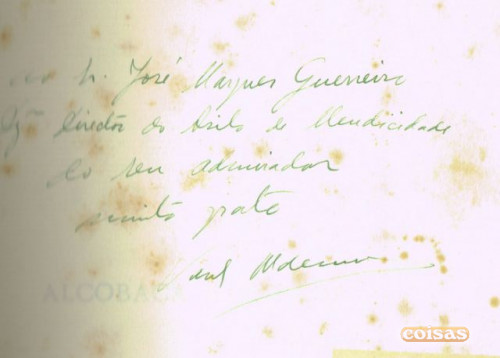 Ao Sr. José Marques Guerreiro
Director do Asilo de Mendicidade
do seu admirador
muito grato
ALCOBAÇA
coisas